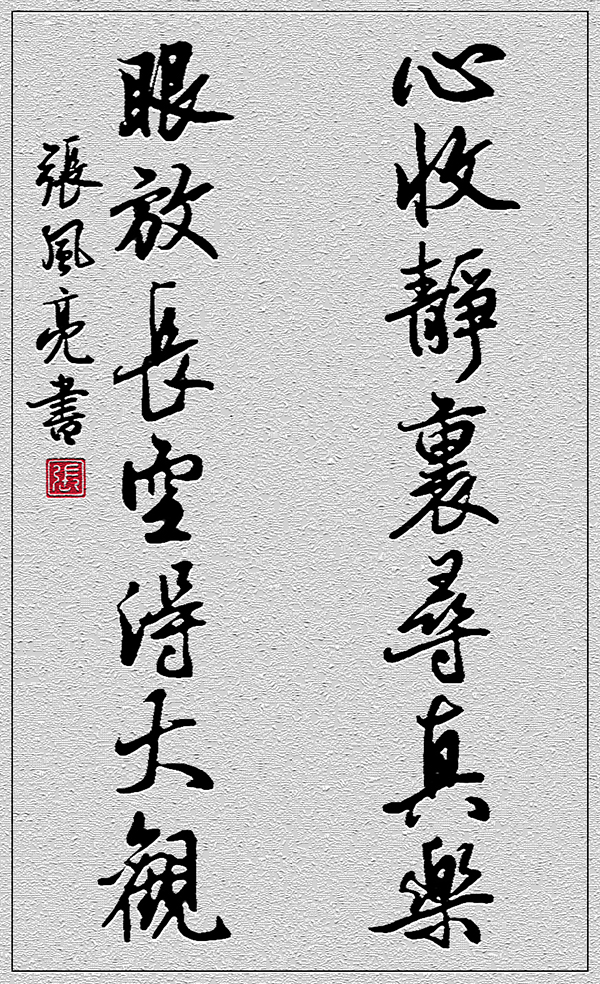 心收靜裏尋真樂
眼放長空得大觀
張風亮書
張